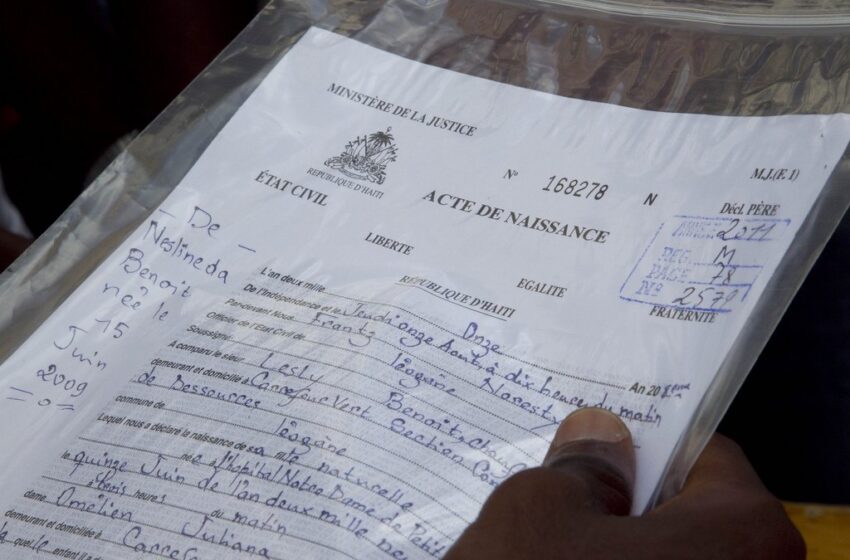 MINISTÈRE DE LA JUSTICE
RÉPUBLIQUE D'HAITI
N° 168278 N
M.J.(E.1)
ÉTAT CIVIL
ACTE DE NAISSANCE
Décl. PÈRE
LIBERTE
EGALITE
FRATERNITE
RÉPUBLIQUE D'HAITI
ANNEE 2011
REG. M
PAGE 78
N° 2579
- De -
Neslineda
Benoit
née le
15
Juin
2009
L'an deux mille Onze
De l'Indépendance et le Jeudi onze Août à dix heures du matin An 208ème
Par-devant Nous, Frantz
Officier de l'Etat Civil de Léogâne
Soussigné
A comparu le sieur Lesly Benoit,
demeurant et domicilié à Carrefour Vert Section
de Dessources
commune de Léogâne
Lequel nous a déclaré la naissance de sa fille naturelle
née à l'hôpital Notre Dame de Petit
le quinze Juin de l'an deux mille
à trois heures du matin
dame Juliana
Omélien
demeurant et domiciliée à